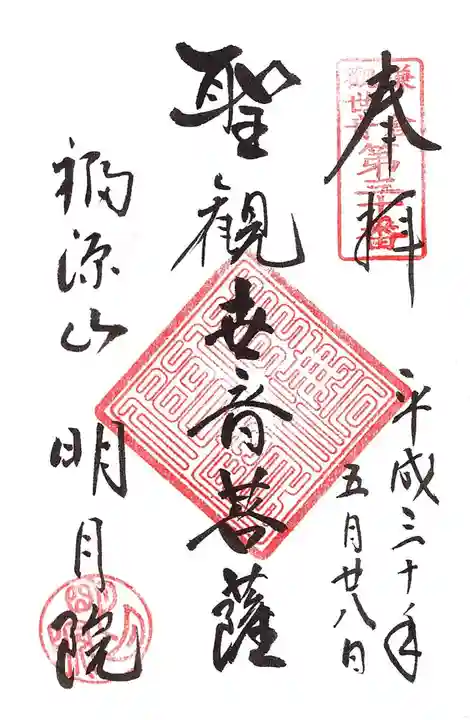 奉拝
平成三十年
五月廿八日
聖観世音菩薩
福源山 明月院